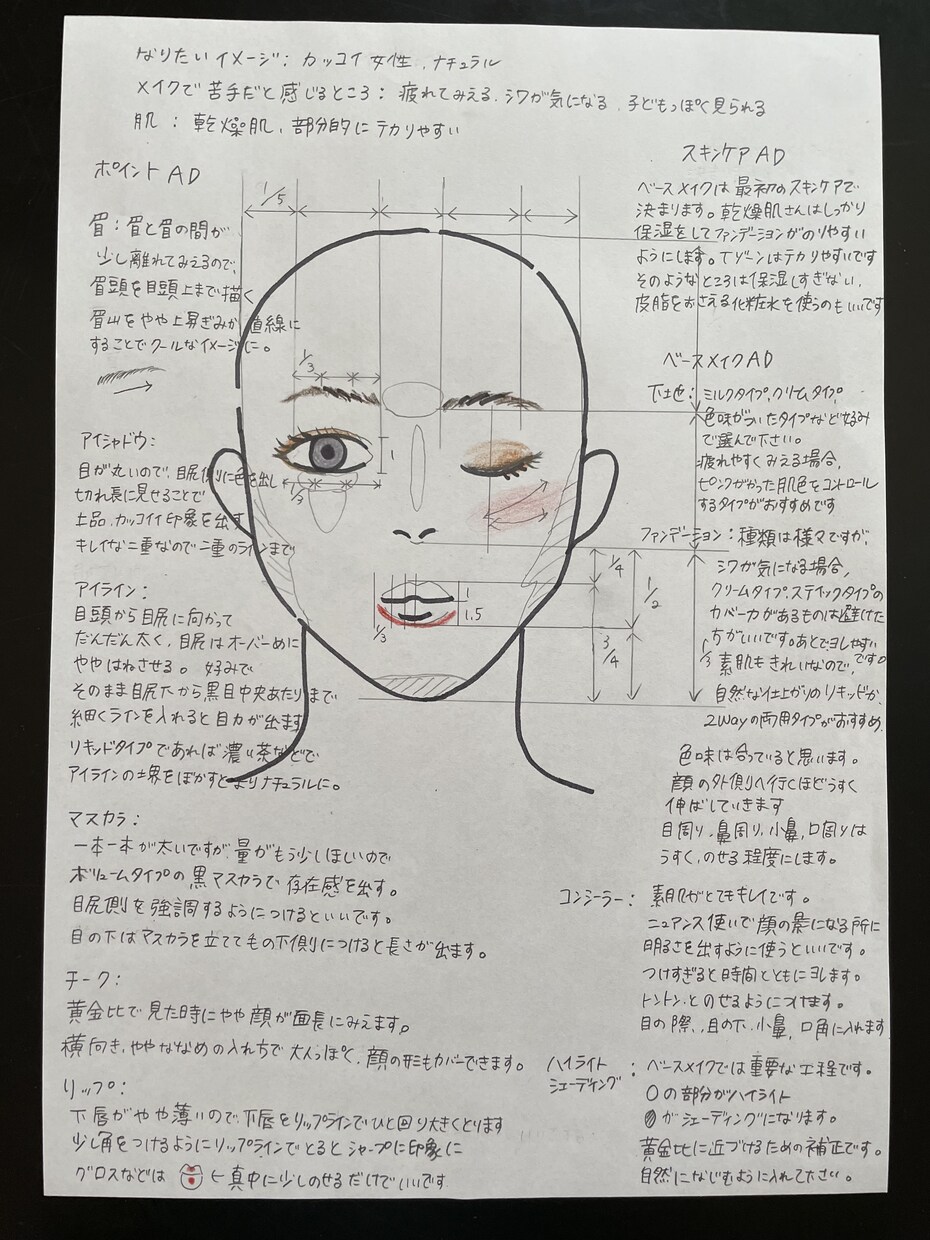 なりたいイメージ: カッコイイ女性、ナチュラル
メイクで苦手だと感じるところ: 疲れてみえる、シワが気になる、子どもっぽく見られる
肌 : 乾燥肌、部分的にテカリやすい
ポイントAD
眉:眉と眉の間が
少し離れてみえるので、
眉頭を目頭上まで描く
眉山をやや上昇ぎみか直線に
することでクールなイメージに。
アイシャドウ:
目が丸いので、目尻側に色を出し
切れ長に見せることで
上品、カッコイイ印象を出す
キレイな二重なので二重のラインまで
アイライン:
目頭から目尻に向かって
だんだん太く、目尻はオーバーめに
ややはねさせる。 好みで
そのまま目尻下から黒目中央あたりまで
細くラインを入れると目力が出ます
リキッドタイプであれば濃い茶などで
アイラインの境界をぼかすとよりナチュラルに。
マスカラ:
一本一本が太いですが、量がもう少しほしいので
ボリュームタイプの黒マスカラで存在感を出す。
目尻側を強調するようにつけるといいです。
目の下はマスカラを立ててもの下側につけると長さが出ます。
チーク:
黄金比で見た時にやや顔が面長にみえます。
横向き、ややななめの入れ方で大人っぽく、顔の形もカバーできます。
リップ:
下唇がやや薄いので下唇をリップラインでひと回り大きくとります
少し角をつけるようにリップラインでとるとシャープに印象に
グロスなどは
と真中に少しのせるだけでいいです
1/5
1/3
1
1/3
1
1.5
1/3
1/4
1/2
3/4
1/3
スキンケアAD
ベースメイクは最初のスキンケアで
決まります。乾燥肌さんはしっかり
保湿をしてファンデーションがのりやすい
ようにします。Tゾーンはテカりやすいです
そのようなところは保湿しすぎない、
皮脂をおさえる化粧水を使うのもいいです
ベースメイクAD
下地: ミルクタイプ、クリームタイプ、
色味がついたタイプなど好み
で選んで下さい。
疲れやすくみえる場合、
ピンクがかった肌色をコントロール
するタイプがおすすめです
ファンデーション:種類は様々ですが、
シワが気になる場合、
クリームタイプ、スティックタイプの
カバー力があるものは避けた
方がいいです。あとでヨレやすい
です。
素肌もきれいなので、
自然な仕上がりのリキッドか、
2Wayの両用タイプがおすすめ
色味は合っていると思います。
顔の外側へ行くほどうすく
伸ばしていきます
目周り、鼻周り、小鼻、口周りは
うすく、のせる程度にします。
コンシーラー: 素肌がとてもキレイです。
ニュアンス使いで顔の影になる所に
明るさを出すように使うといいです。
つけすぎると時間とともにヨレます。
トントン、とのせるようにつけます。
目の際、目の下、小鼻、口角に入れます
ハイライト
シェーディング : ベースメイクでは重要な工程です。
〇の部分がハイライト
がシェーディングになります。
黄金比に近づけるための補正です。
自然になじむように入れて下さい。